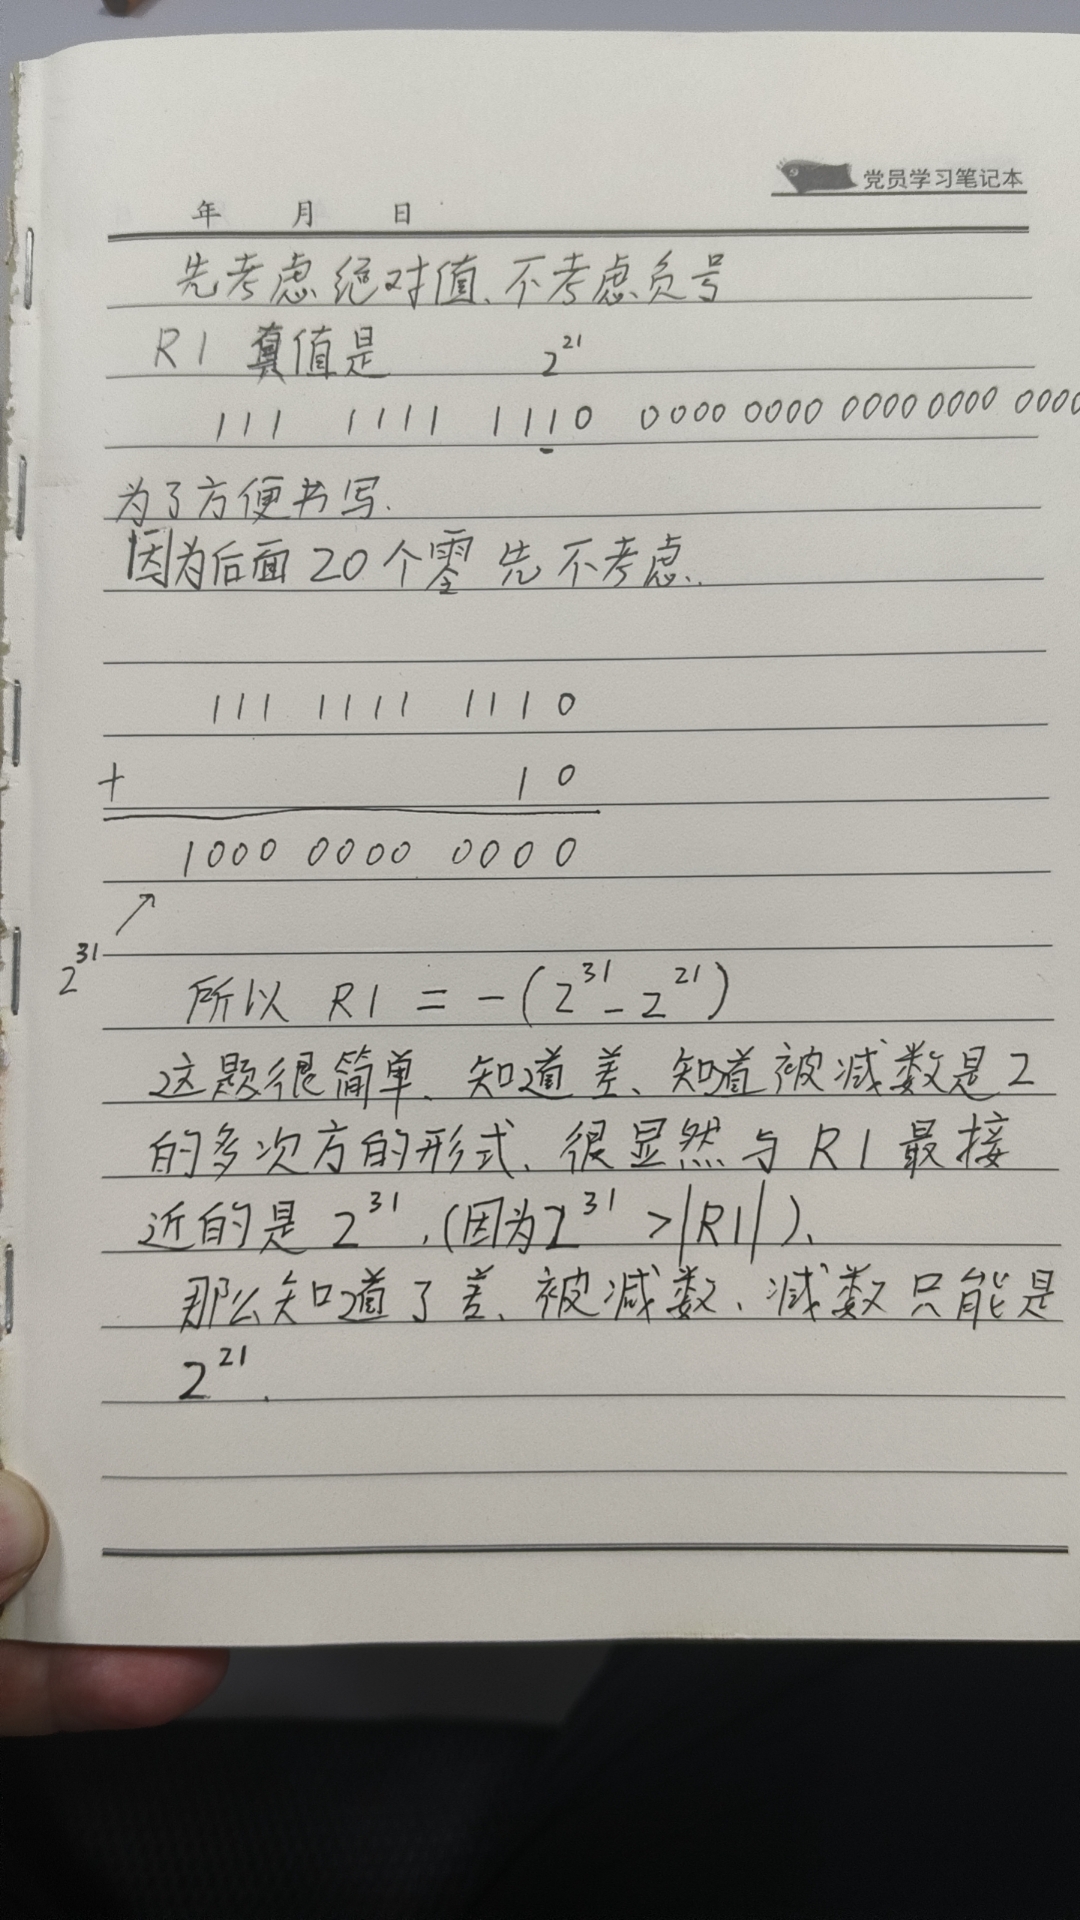 党员学习笔记本
年 月 日
先考虑绝对值、不考虑负号
R1 真值是 2^21
111 1111 1110 0000 0000 0000 0000 0000
为了方便书写.
因为后面20个零 先不考虑.
111 1111 1110
+ 10
1000 0000 0000
2^31
所以 R1 = -(2^31 - 2^21)
这题很简单、知道差、知道被减数是2
的多次方的形式、很显然与R1最接
近的是 2^31.(因为2^31 >|R1|)、
那么知道了差、被减数、减数只能是
2^21.